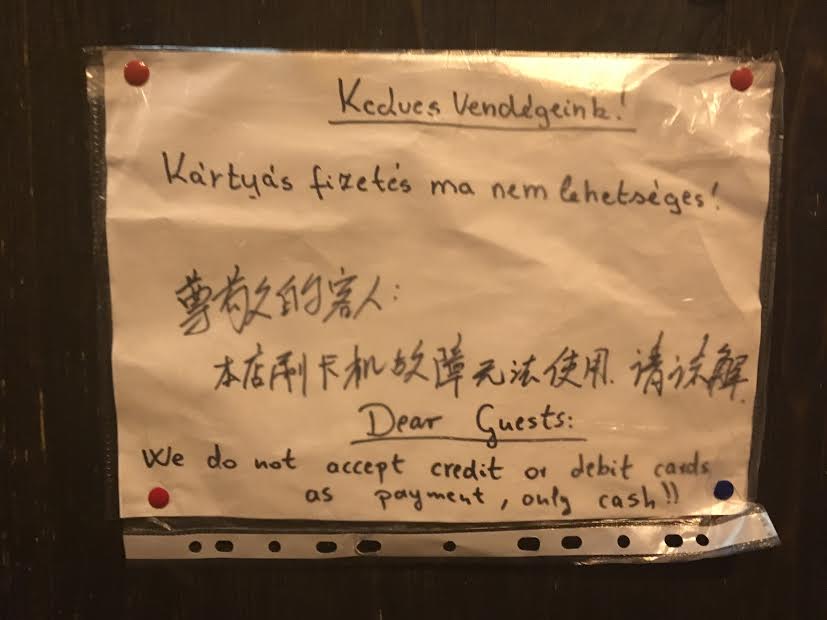 Kedves Vendégeink!
Kártyás fizetés ma nem lehetséges!
尊敬的客人:
本店刷卡机故障无法使用. 请谅解
Dear Guests:
We do not accept credit or debit cards
as payment, only cash!!